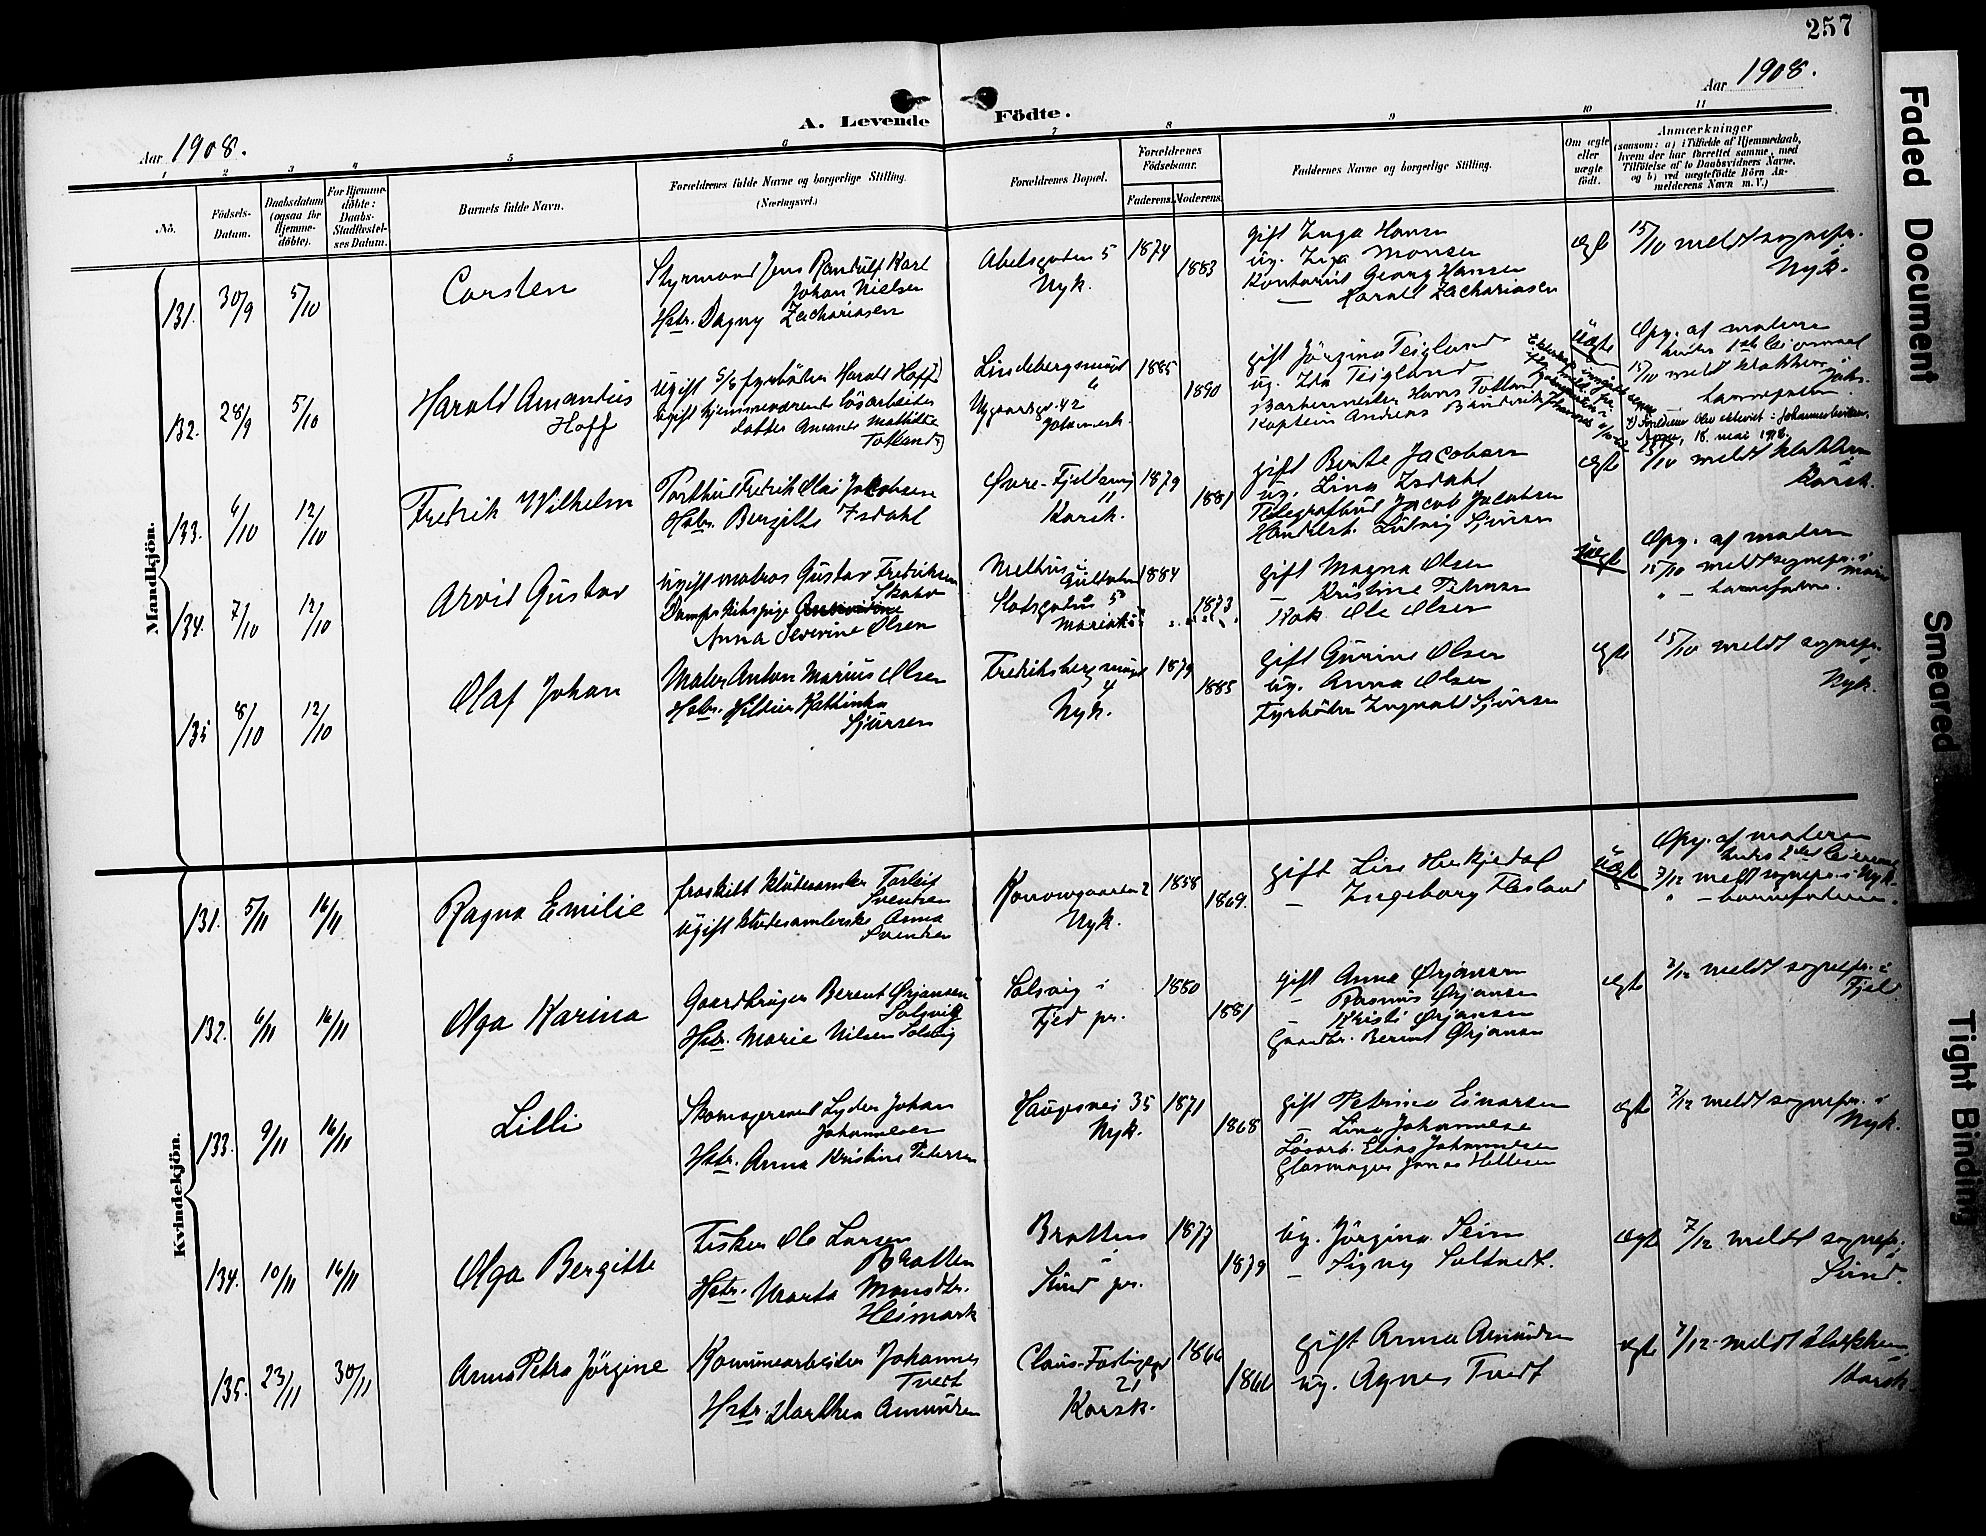 257
Aar 1908.
Aar 1908.
A. Levende Födte.
1 2 3 4 5 6 7 8 9 10 11
No.
Födsels-
Datum.
Daabsdatum
(ogsaa for
Hjemme-
döbte).
For Hjemme-
döbte:
Daabs-
Stadfæstel-
ses Datum.
Barnets fulde Navn.
Forældrenes fulde Navne og borgerlige Stilling.
(Næringsvei.)
Forældrenes Bopæl.
Forældrenes
Födselsaar.
Faderens.
Moderens.
Faddernes Navne og borgerlige Stilling.
Om ægte
eller
uægte
født.
Anmærkninger
(saasom: a) i Tilfælde af Hjemmedaab,
hvem der har forrettet samme, med
Tilföielse af to Daabsvidners Navne,
og b) ved uægtefödte Börn An-
melderens Navn m. V.)
Mandkjön.
131. 30/9 5/10
Carsten
Styrmand Jens Randulf Karl
Johan Nielsen
Hstr. Dagny Zachariasen
Abelsgaden 5
Nyk.
1874
1883
gift Inga Hansen
ug. Inga Monsen
Kontorist Georg Hansen
— Harald Zachariasen
ægte
15/10 meldt sognepr. i
Nyk.
132. 28/9 5/10
Harald Amandus
Hoff
Ugift fyrböder Harald Hoff
Ugift hjemmeværende lösarbeider
datter Amanda Mathilde
Totland
Lindebergsmuget
Nygaardsg. 42
Johannesk.
1885
1890
gift Jörgine Teigland
ug. Ida Teigland
Barbermester Hans Totland
Kaptein Andreas
Uægte
Opg. af moderen
hendes 1ste leiermaal
15/10 meldt klokkeren i Joh.
— barnefaderen.
18. mai 1918.
133. 6/10 12/10
Fredrik Wilhelm
Fredrik Olai Jacobsen
Hstr. Bergitte Isdahl
Övre-Fjeldsmug
11
Korsk.
1879
1881
gift Bente Jacobsen
ug. Lina Isdahl
Telegrafbud Jacob Jacobsen
Handelsb. Ludvig Sjursen
ægte
15/10 meldt klokkeren
Korsk.
134. 7/10 12/10
Arvid Gustav
Ugift matros Gustav Fredriksen
Dampskibspige
Anna Severine Olsen
Slotsgaden 5
Mariak.
1884
1873
gift Magna Olsen
— Kristine Petersen
Kok Ole Olsen
Uægt
Opg. af moderen
15/10 meldt sognepr. i Maria
" — barnefaderen.
135 8/10 12/10
Olaf Johan
Maler Anton Marius Olsen
Hstr. Hilda Kathinka
Sjursen
Fredriksbergsmuget
4
Nyk.
1879
1885
gift Gurine Olsen
ug. Anna Olsen
Fyrböder Ingvald Sjursen
ægte
15/10 meldt sognepr. i
Nyk.
Kvindekjön.
131. 5/11 16/11
Ragna Emilie
fraskilt kludesamler Torleif
Svendsen
Ugift kludesamlerske Anna
Svendsen
Korrowgaarden 2
Nyk.
1858
1869.
gift Lise Herkjedal
— Ingeborg Flesland
Uægt
Opg. af moderen
hendes 2det leiermaal
7/12 meldt sognepr. i Nyk.
" — barnefaderen.
132. 6/11 16/11
Olga Karina
Gaardbruger Berent Ørjansen
Solsvig
Hstr. Marie Nilsen Solsvig
Solsvig i
Fjed pr.
1880
1881
gift Anna Ørjansen
— Rasmus Ørjansen
— Kristi Ørjansen
Gaardbr. Berent Ørjansen
ægte
7/12 meldt sognepr. i
Fjel.
133. 9/11 16/11
Lilli
Skomagersvend Lyder Johan
Johannessen
Hstr. Anna Kristine Petersen
Haugevei 35
Nyk.
1871
1868
gift Petrine Einarsen
— Lina Johannesen
Løsarb. Elias Johannesen
Glasmager Jonas Hellesen
ægte
7/12 meldt sognepr. i
Nyk.
134. 10/11 16/11
Olga Bergitte
Fisker Ole Larsen
Bratten
Hstr. Marta Monsdtr.
Heimark
Bratten
i
Sund pr.
1877
1879
ug. Jörgina Seim
— Signy Soltvedt.
ægte
7/12 meldt sognepr. i
Sund.
135. 23/11 30/11
Anna Petra Jörgine
Kommunearbeider Johannes
Tvedt
Hstr. Dorthea Amundsen
Claus-
21
Korsk.
1866
1866
gift Anna Amundsen
ug. Agnes Tvedt
ægte
7/12 meldt klokkeren
Korsk.
Faded Document
Smeared
Tight Binding